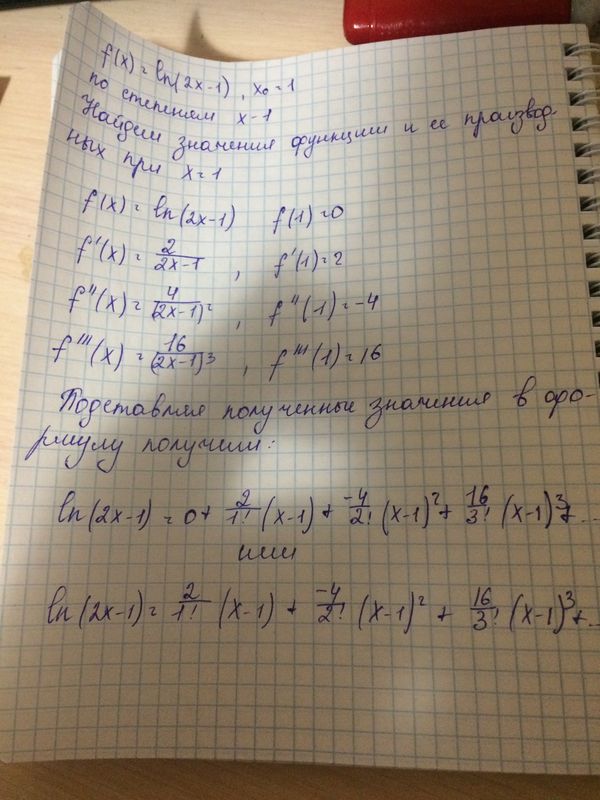 f(x) = ln(2x-1), x₀ = 1
по степеням x-1
Найдем значения функции и ее производ-
ных при x = 1
f(x) = ln(2x-1) f(1) = 0
f'(x) = 2/(2x-1), f'(1) = 2
f''(x) = 4/(2x-1)², f''(1) = -4
f'''(x) = 16/(2x-1)³, f'''(1) = 16
Подставляя полученные значения в фо-
рмулу получим:
ln(2x-1) = 0 + 2/1! (x-1) + -4/2! (x-1)² + 16/3! (x-1)³ + ...
или
ln(2x-1) = 2/1! (x-1) + -4/2! (x-1)² + 16/3! (x-1)³ + ...